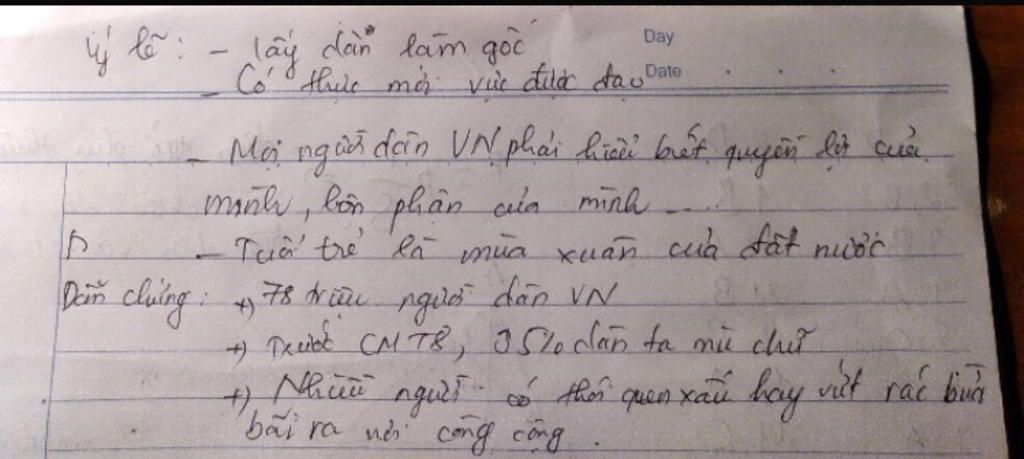 Lý lẽ: - lấy dân làm gốc
Day
- Có thực mới vực được đạo
Date . . .
- Mọi người dân VN phải hiểu biết quyền lợi của
mình, bổn phận của mình ...
- Tuổi trẻ là mùa xuân của đất nước
Dẫn chứng: +) 78 triệu người dân VN
+) Trước CMT8, 95% dân ta mù chữ
+) Nhiều người có thói quen xấu hay vứt rác bừa
bãi ra nơi công cộng.